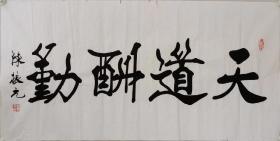 天道酬勤
陈振元